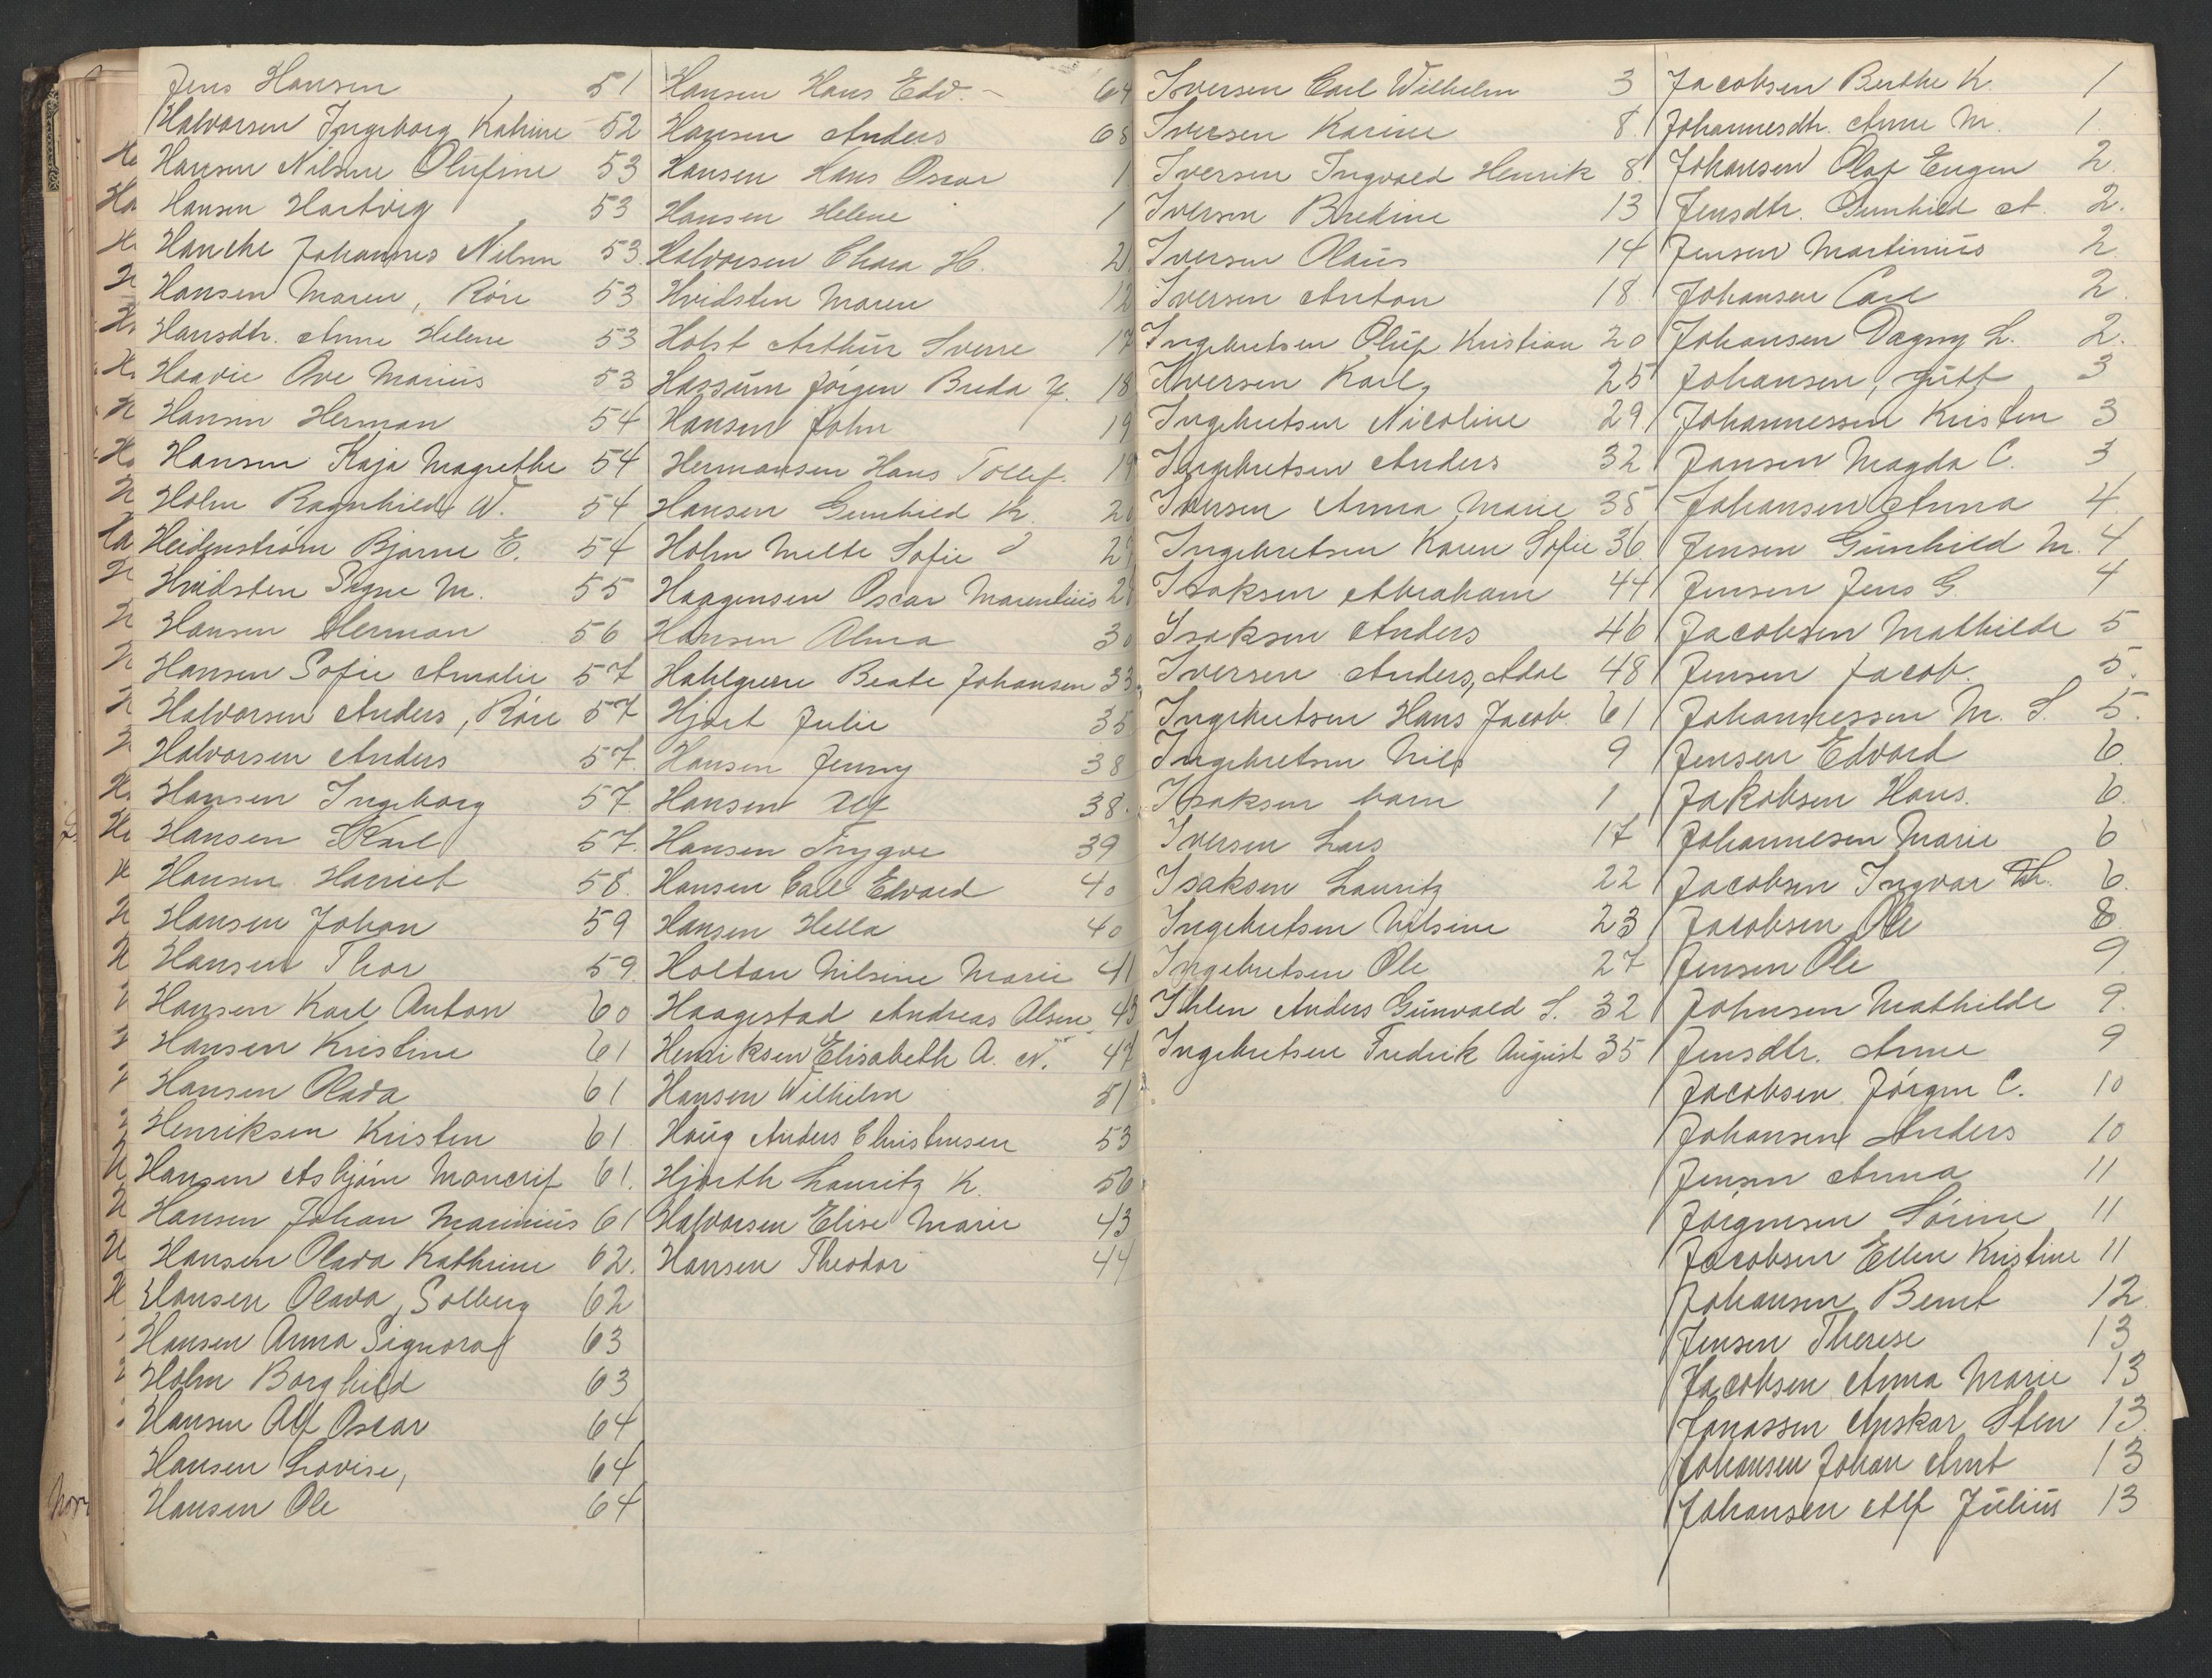 Jens Hansen 51
Halvorsen Ingeborg Katrine 52
Hansen Nilsine Olufine 53
Hansen Hartvig 53
Hanche Johannes Nilsen 53.
Hansen Maren, Röre 53
Hansdtr. Anne Helene 53
Haavie Ove Marius 53
Hansen Herman 54
Hansen Kaja Magrethe 54
Holm Ragnhild W. 54
Heidenstrøm Bjarne E. 54
Hvidsten Signe M. 55
Hansen Herman 56
Hansen Sofie Amalie 57
Halvorsen Anders, Röre 57
Halvorsen Anders 57.
Hansen Ingeborg 57.
Hansen Karl 57.
Hansen Harriet 58.
Hansen Johan 59
Hansen Thor 59.
Hansen Karl Anton 60
Hansen Kristine 61
Hansen Olava 61
Henriksen Kristen 61.
Hansen Asbjörn Moncrif 61.
Hansen Johan Marinius 61
Hansen Olava Kathrine 62.
Hansen Olava, Solberg 62
Hansen Anna Signora 63
Holm Borghild 63
Hansen Alf Oscar 64
Hansen Lovise, 64
Hansen Ole 64
Hansen Hans Edv. 64
Hansen Anders 68
Hansen Hans Oscar 1
Hansen Helene 1
Halvorsen Chara H. 2.
Hvidsten Maren 12
Holst Arthur Sverre 17
Hassum Jörgen Breda 18
Hansen John 19
Hermansen Hans Tollef. 19
Hansen Gunhild K. 20
Holm Mette Sofie
Haagensen Oscar Marentius
Hansen Alma 30
Hahlgreen Beate Johansen 33.
Hjort Julie 35
Hansen Jenny 38
Hansen Alf 38.
Hansen Trygve 39
Hansen Carl Edvard 40
Hansen Hella 40
Holtan Nilsine Marie 41
Haagestad Andreas Olsen 43
Henriksen Elisabeth A. N. 47
Hansen Wilhelm 51
Haug Anders Christensen 53
Hjorth Lauritz K. 56
Halvorsen Elise Marie 43
Hansen Theodor 44
Iversen Carl Wilhelm 3
Iversen Karine 8.
Iversen Ingvald Henrik 8.
Iversen Bredine 13
Iversen Olaus 14
Iversen Anton 18.
Ingebretsen Oluf Kristian 20
Iversen Karl, 25
Ingebretsen Nicoline 29.
Ingebretsen Anders 32
Iversen Anna Marie 35
Ingebretsen Karen Sofie 36.
Isaksen Abraham 44
Isaksen Anders 46
Iversen Anders, Adal 48
Ingebretsen Hans Jacob. 61
Ingebretsen Nils 9
Isaksen barn 1
Iversen Lars 17
Isaksen Lauritz 22
Ingebretsen Nilsine 23
Ingebretsen Ole 27
Ihlen Anders Gunvald S. 32
Ingebretsen Fredrik August 35
Jacobsen Berthe K. 1
Johannesdtr. Anne M. 1.
Johansen Olaf Eugen 2.
Jensdtr. Gunhild A. 2.
Jensen Martinius 2.
Johansen Carl 2.
Johansen Dagny L. 2.
Johansen, gutt 3
Johannessen Kristen 3
Jansen Magda C. 3
Johansen Anna 4.
Jensen Gunhild M. 4
Jensen Jens G. 4
Jacobsen Mathilde 5
Jensen Jacob. 5.
Johannessen M. S. 5.
Jensen Edvard 6.
Jakobsen Hans. 6.
Johannesen Marie 6
Jacobsen Ingvar Th. 6.
Jacobsen Ole 8
Jensen Ole 9.
Johnsen Mathilde 9.
Jensdtr. Anne 9
Jacobsen Jörgen C. 10
Johansen Anders 10
Jensen Anna 11
Jörgensen Sörine 11
Jacobsen Ellen Kristine 11
Johansen Bernt 12.
Jensen Therese 13
Jacobsen Anna Marie 13
Jonassen Anskar Sten 13.
Johansen Johan Arnt 13
Johansen Alf Julius 13